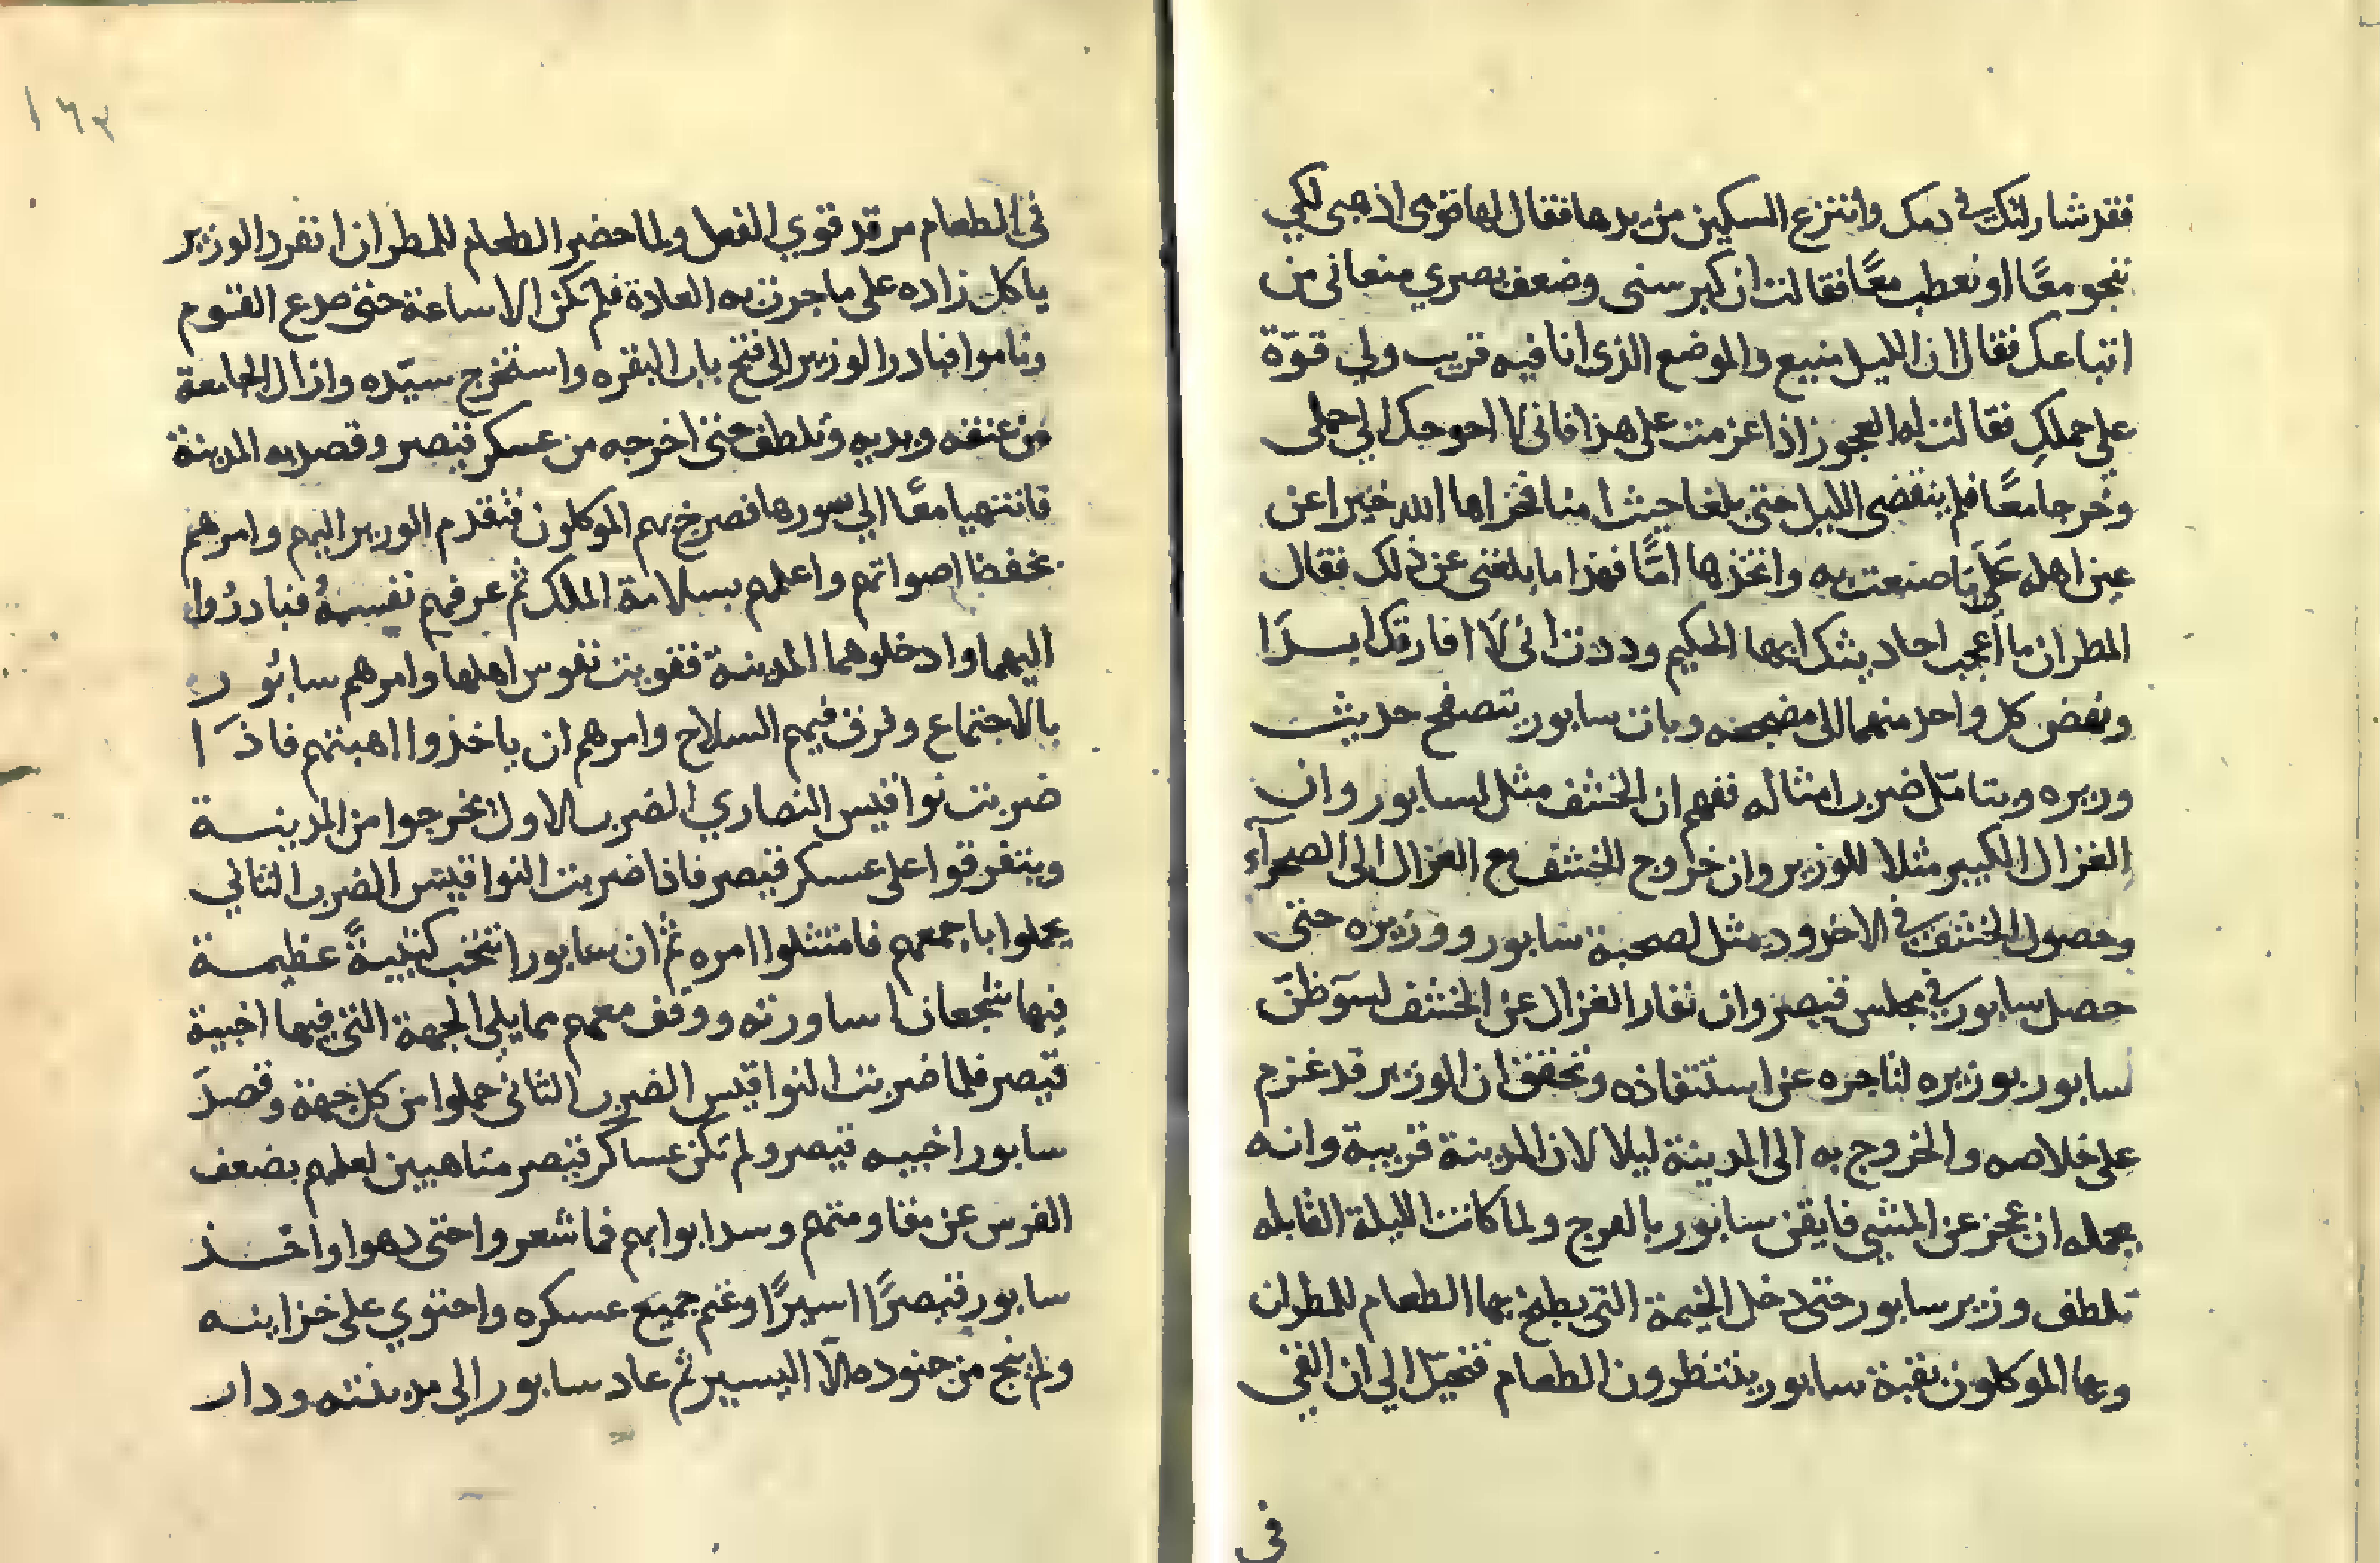 فقد شاركتك في دمك وانتزع السكين من يدها فقال لها قومي اذهبي لكي
ننجو معًا او نعطب معًا فقالت ان كبر سني وضعف بصري منعاني من
اتباعك فقال ان الليل منيع والموضع الذي انا فيه قريب ولي قوّة
على حملكِ فقالت له العجوز اذا عزمت على هذا فاني لا احوجك الي حملى
وخرجا معًا فلم ينقضى الليل حتى بلغا حيث امنا فجزاها الله خيرا عن
عين اهله على ما صنعت به واتخذها امًّا فهذا ما بلغني عن ذلك فقال
المطران ما اعجب احاديثك ايها الحكيم وددت اني لا افارقك ابدًا
ونهض كل واحد منهما الى مضجعه وبات سابور يتصفح حديث
وزيره ويتامّل ضرب امثاله ففهم ان الخشف مثل لسابور وان
الغزال الكبير مثلا للوزير وان خروج الخشف مع الغزال الى الصحرآء
وحصول الخشف في الاخدود مثل لصحبة سابور ووزيره حتى
حصل سابور في مجلس قيصر وان نفار الغزال عن الخشف لسوَ ظنّ
سابور بوزيره لتاخره عن استنقاذه وتحقق ان الوزير قد عزم
على خلاصه والخروج به الى المدينة ليلا لان المدينة قريبة وانه
يحمله ان عجز عن المشي فايقن سابور بالفرج ولما كانت الليلة القابله
تلطف وزير سابور حتى دخل الخيمة التي يطبخ بها الطعام للمطران
وبها الموكلون بقبة سابور ينتظرون الطعام فتحيّل الي ان القى
في
١٦٣
في الطعام مرقد قوي الفعل ولما حضر الطعام للمطران انفرد الوزير
ياكل زاده على ما جرت به العادة فلم تكن الا ساعة حتى صرع القوم
وناموا فبادر الوزير الى فتح باب البقره واستخرج سيّده وازال الجامعة
من عنقه ويديه وتلطف حتى اخرجه من عسكر قيصر وقصد به المدينة
فانتهيا معًا الي سورها فصرخ بهم الموكلون فتقدم الوزير اليهم وامرهم
بخفظ اصواتهم واعلمهم بسلامة الملك ثم عرفهم نفسهُ فبادرُوا
اليهما وادخلوهما المدينة فقويت نفوس اهلها وامرهم سابُور
بالاجتماع وفرق فيهم السلاح وامرهم ان ياخذوا اهبتهم فاذَا
ضربت نواقيس النصاري الضرب الاول يخرجوا من المدينة
ويتفرقوا على عسكر قيصر فاذا ضربت النواقيس الضرب الثاني
يحملوا باجمعهم فامتثلوا امره ثم ان سابور انتخب كتيبةً عظيمة
فيها شجعان اساورته ووقف معهم مما يلي الجهة التي فيها اخبية
قيصر فلما ضربت النواقيس الضرب الثاني حملوا من كل جهة وقصدَ
سابور اخبيه قيصر ولم تكن عساكر قيصر متاهبين لعلمهم بضعف
الفرس عن مقاومتهم وسد ابوابهم فما شعروا حتى دهوا واخذ
سابور قيصرًا اسيرًا وغنم جميع عسكره واحتوي على خزاينه
ولم ينج من جنوده الّا اليسير ثم عاد سابور الى مدينته ودار